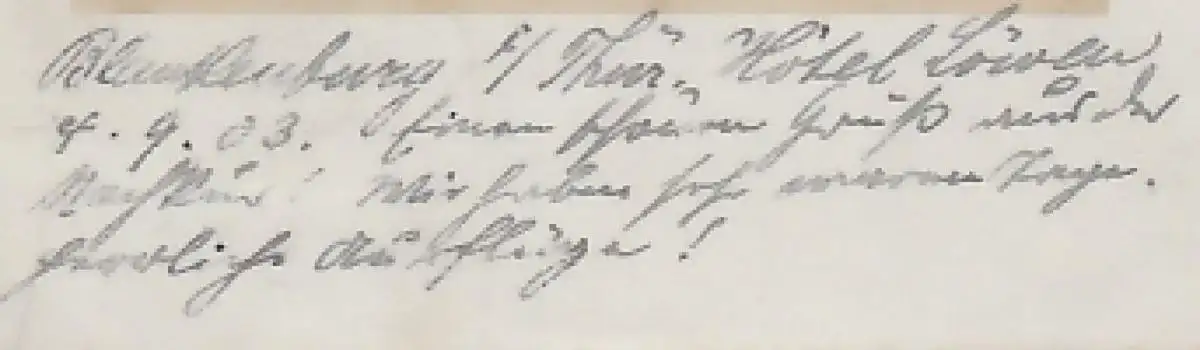 Blankenburg i/Thür. "Hôtel Löwen"
4. 9. 03. Einen schönen Gruß aus der
Nachkur! Wir haben sehr warme Tage.
herrliche Ausflüge!